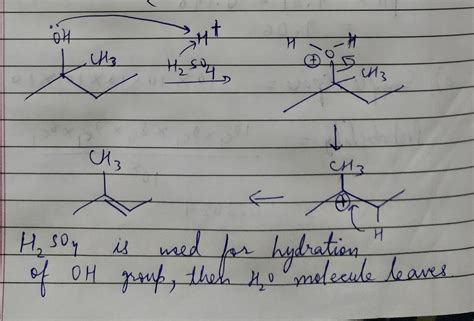 ÖH
H⁺
CH₃
H₂SO₄
H H
⊕ O
CH₃
CH₃
CH₃
⊕
H
H₂SO₄ is used for hydration
of OH group, then H₂O molecule leaves